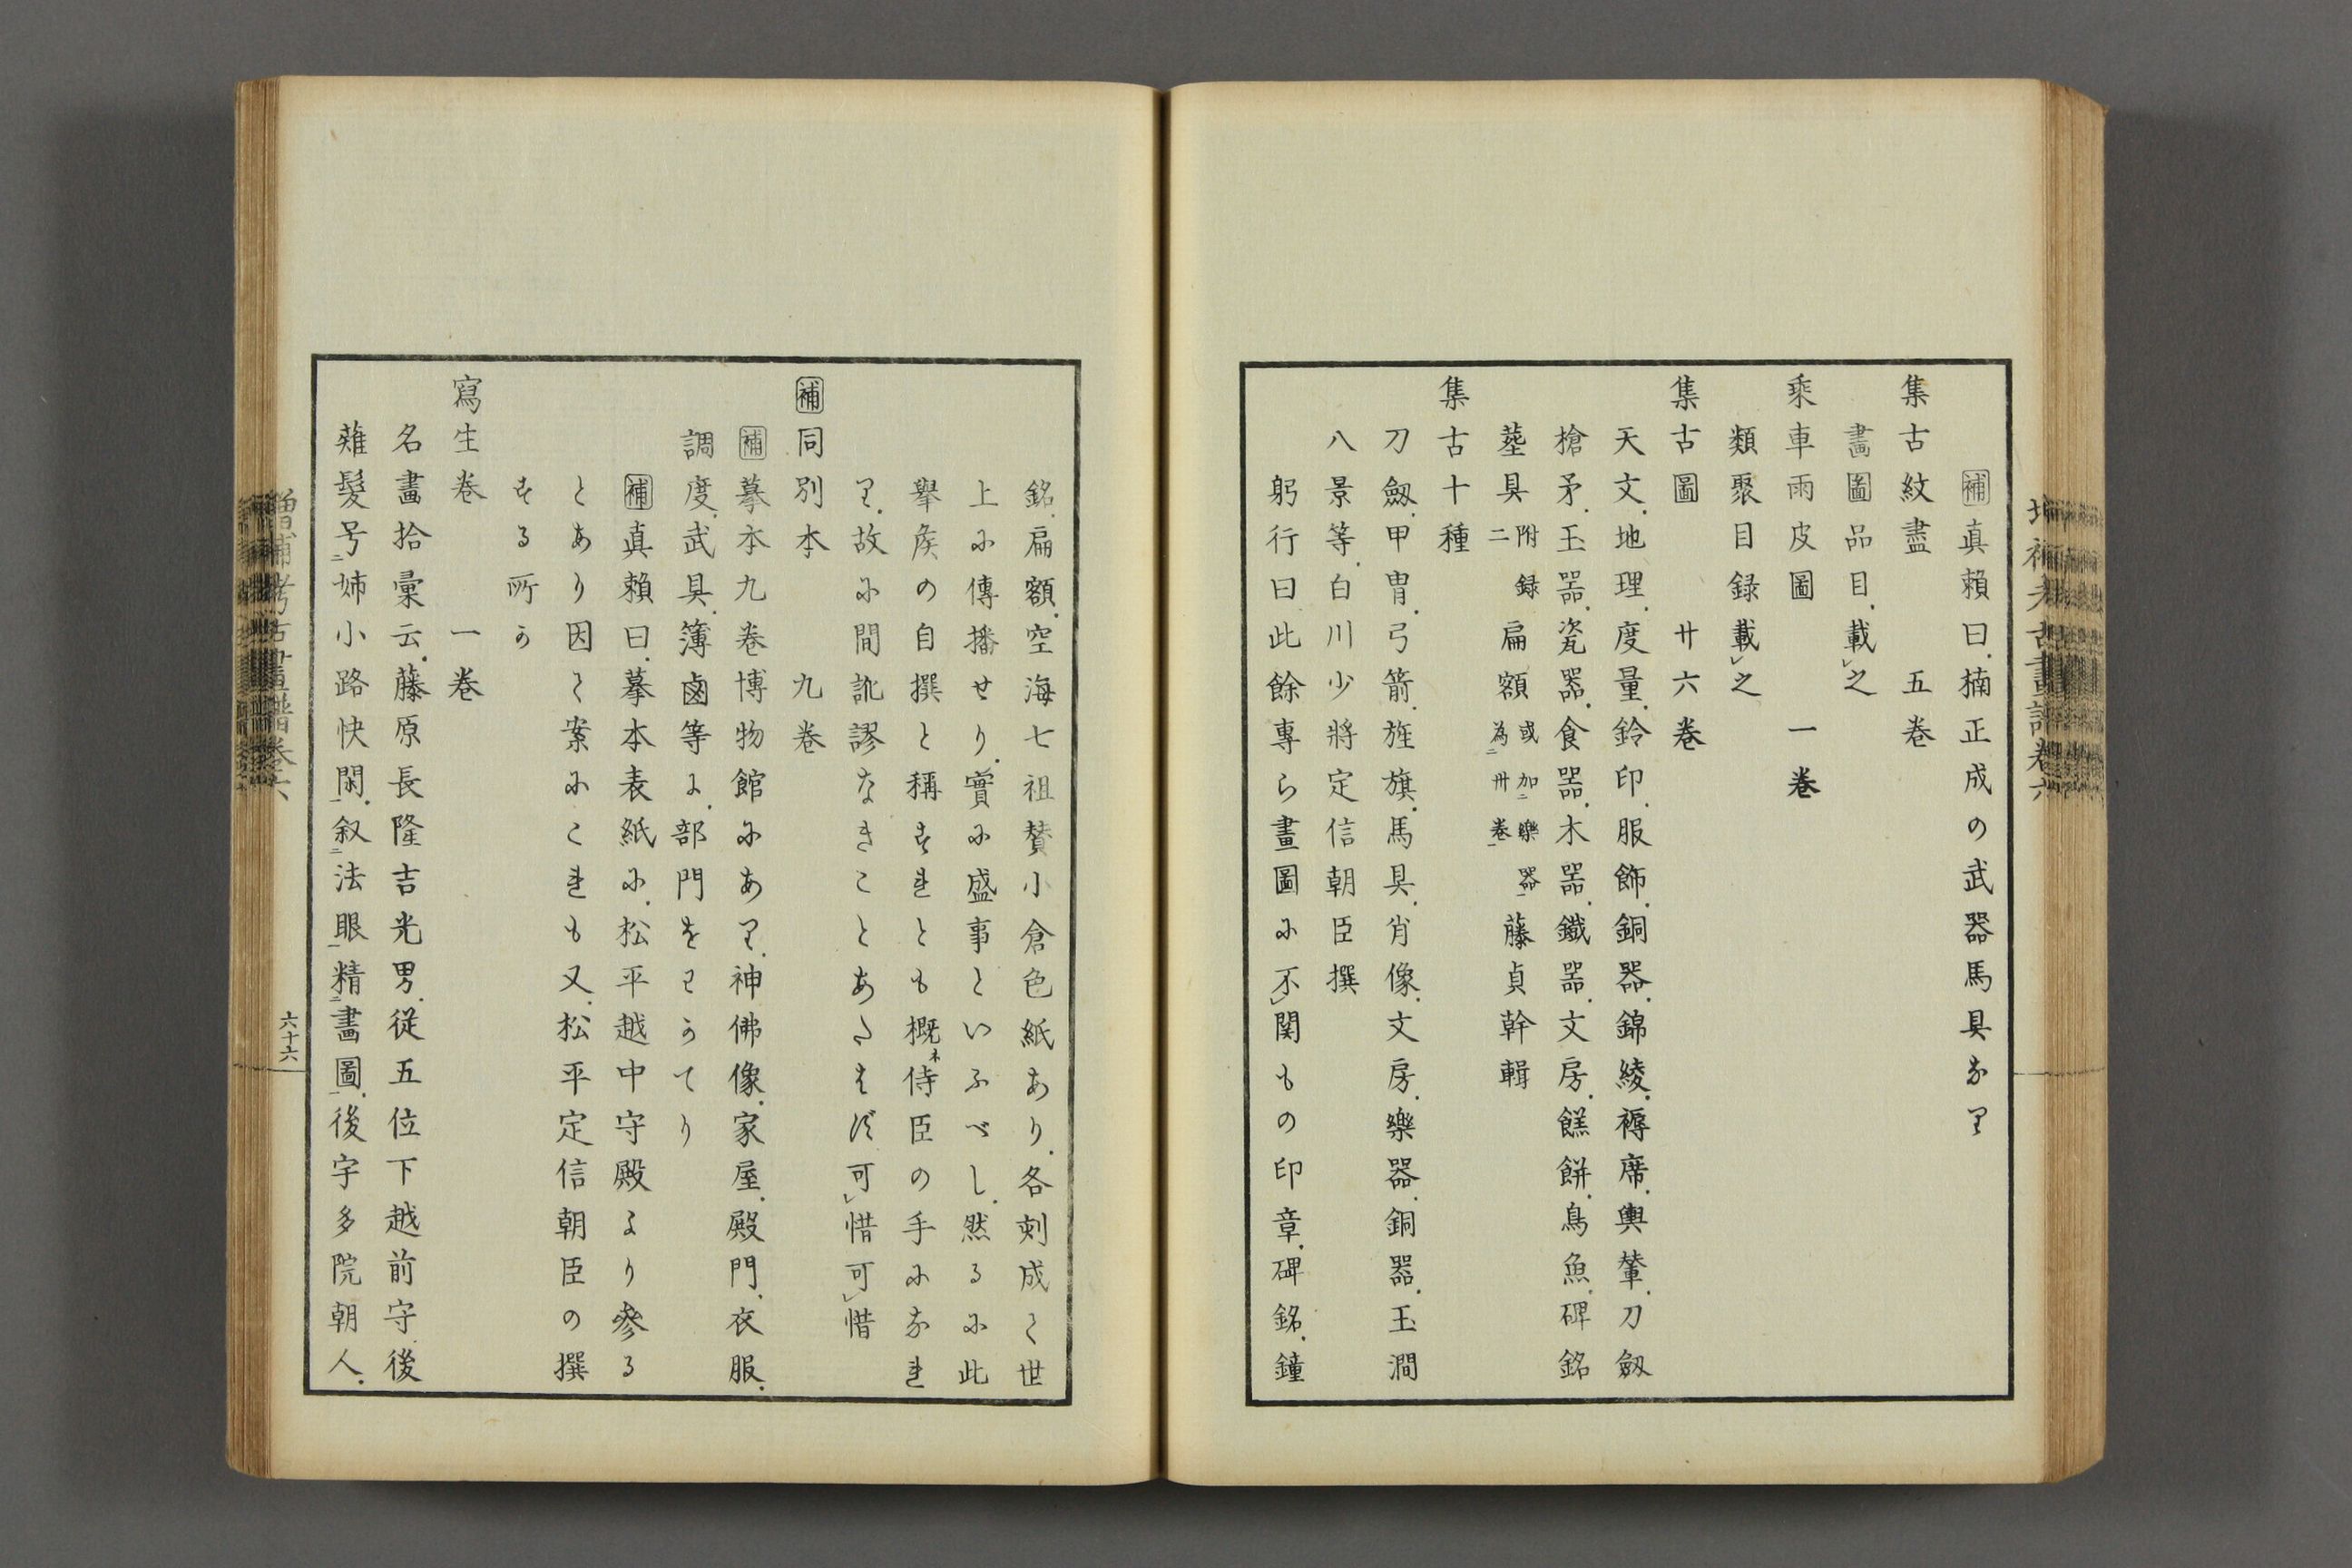 補真頼曰.楠正成の武器馬具なり
集古紋盡　五卷
畫圖品目.載レ之
乘車雨皮圖　一卷
類聚目録載レ之
集古圖　廿六卷
天文.地理.度量.鈴印.服飾.銅器.錦綾.褥席.輿輦.刀劔
槍矛.玉器.瓷器.食器.木器.鐵器.文房.餻餅.鳥魚.碑銘
墓具二附録扁額或加二樂器一為二卅卷一藤貞幹輯
集古十種
刀劔.甲冑.弓箭.旌旗.馬具.肖像.文房.樂器.銅器.玉澗
八景等.白川少將定信朝臣撰
躬行曰此餘專ら畫圖に不レ関もの印章.碑銘.鐘
銘.扁額.空海七祖賛小倉色紙あり.各刻成て世
上に傳播せり.實に盛事といふべし.然るに此
擧侯の自撰と稱すれとも概ネ侍臣の手になれ
り.故に間訛謬なきことあたはず可レ惜可レ惜
補同別本　九卷
補摹本九卷博物館にあり.神佛像.家屋.殿門.衣服.
調度.武具.簿鹵等に.部門をわかてり
補真頼曰.摹本表紙に.松平越中守殿より參る
とあり因て案にこれも又.松平定信朝臣の撰
する所か
寫生卷　一卷
名畫拾彙云.藤原長隆吉光男.従五位下越前守.後
薙髮号二姉小路快閑一.叙二法眼一精二畫圖一.後宇多院朝人.
六十六
増補考古畫譜卷六